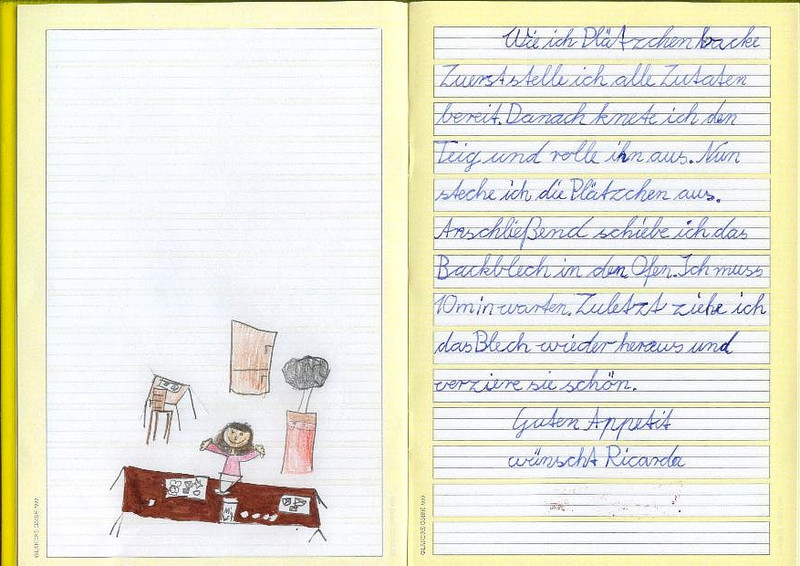 Wie ich Plätzchen backe
Zuerst stelle ich alle Zutaten
bereit. Danach knete ich den
Teig und rolle ihn aus. Nun
steche ich die Plätzchen aus.
Anschließend schiebe ich das
Backblech in den Ofen. Ich muss
10 min warten. Zuletzt ziehe ich
das Blech wieder heraus und
verziere sie schön.
Guten Appetit
wünscht Ricarda